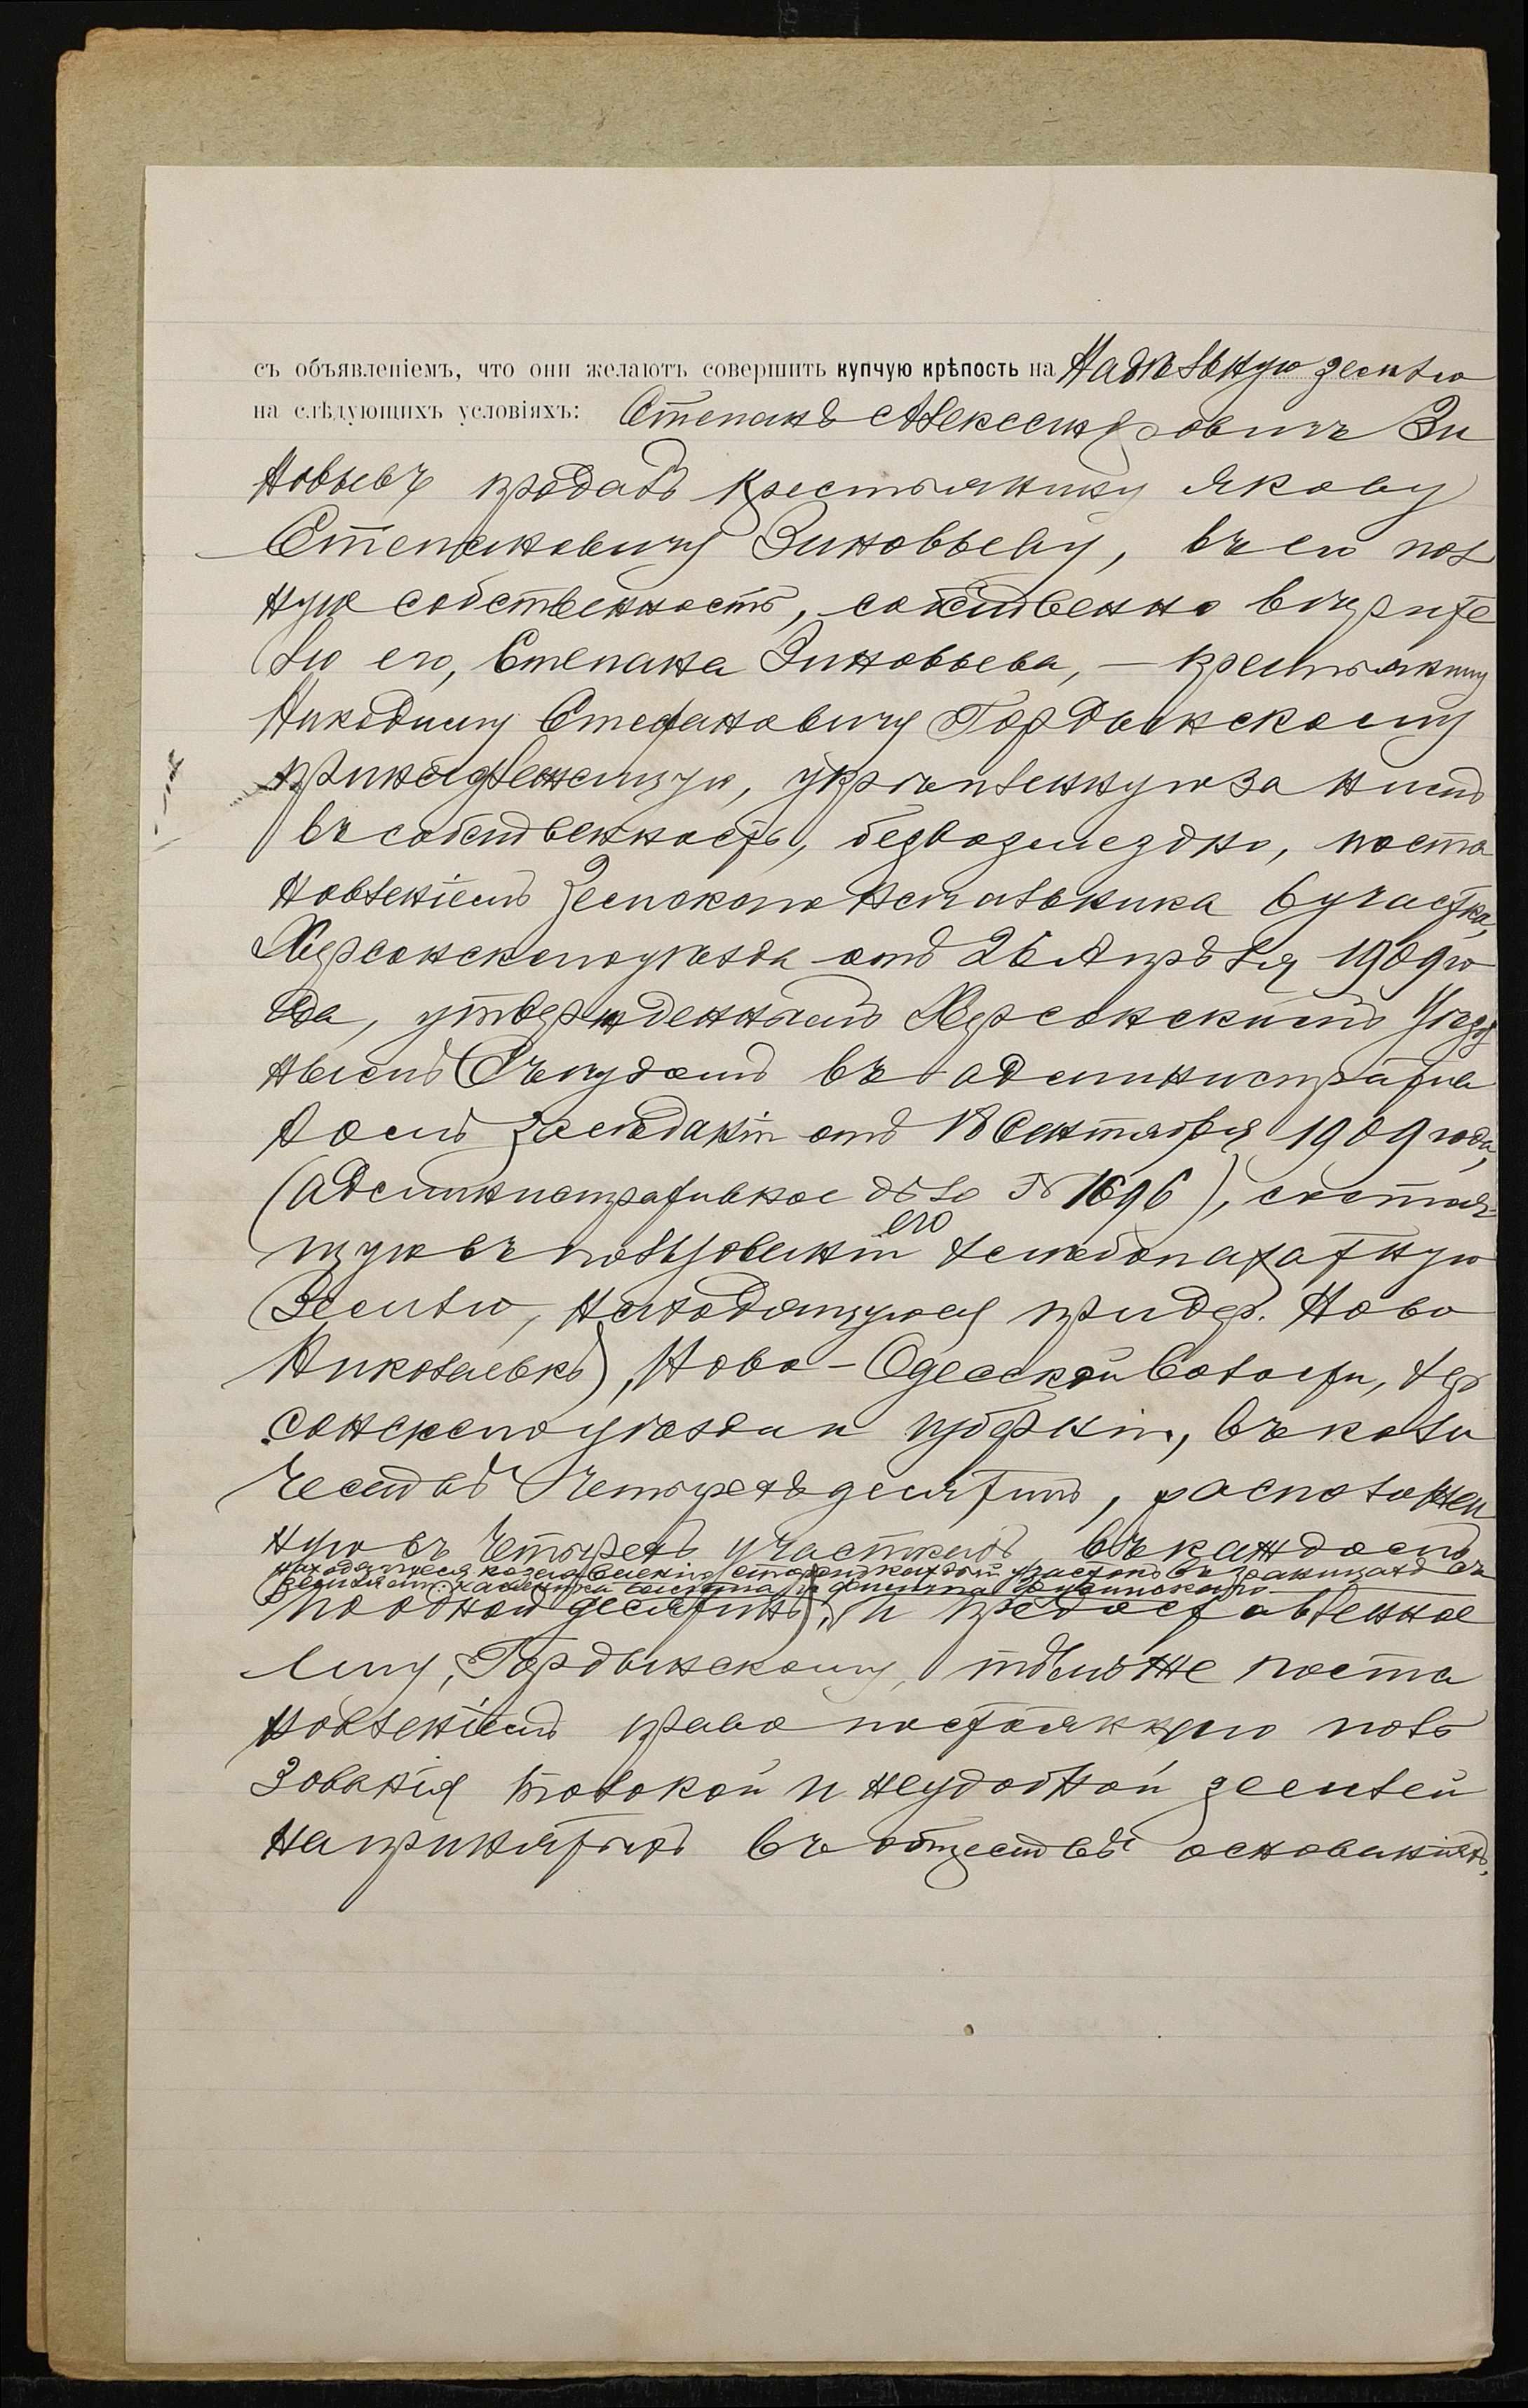 съ объявленіемъ, что они желаютъ совершить купчую крѣпость на Надѣльную землю
на слѣдующихъ условіяхъ: Степанъ Александровичъ Зи
новьевъ продалъ крестьянину Якову
Степановичу Зиновьеву, въ его пол
ную собственность, собственно вѣрите
лю его, Степана Зиновьева, — крестьянину
Никодиму Стефановичу Гордынскому
принадлежащую, укрѣпленную за нимъ
въ собственность, безвозмездно, поста
новленіемъ Земскаго Начальника 6 участка,
Херсонскаго уѣзда отъ 26 Апрѣля 1909 го
да, утвержденнымъ Херсонскимъ Уѣзд
нымъ Съѣздомъ въ административ
номъ засѣданіи отъ 18 Сентября 1909 года,
(административное дѣло № 1696), состоя-
щую въ пользованіи его
землю, находящуюся при дер. Ново
Николаевкѣ, Ново-Одесской волости, Хер
сонскаго уѣзда и губерніи, въ коли
чествѣ четырехъ десятинъ, расположен
ную въ четырехъ участкахъ въ каждомъ
каждый участокъ въ границахъ съ
по одной десятинѣ, и предоставленное
ему, Гордынскому, тѣмъ же поста
новленіемъ право постояннаго поль
зованія толокой и неудобной землей
на принятыхъ въ обществѣ основаніяхъ,